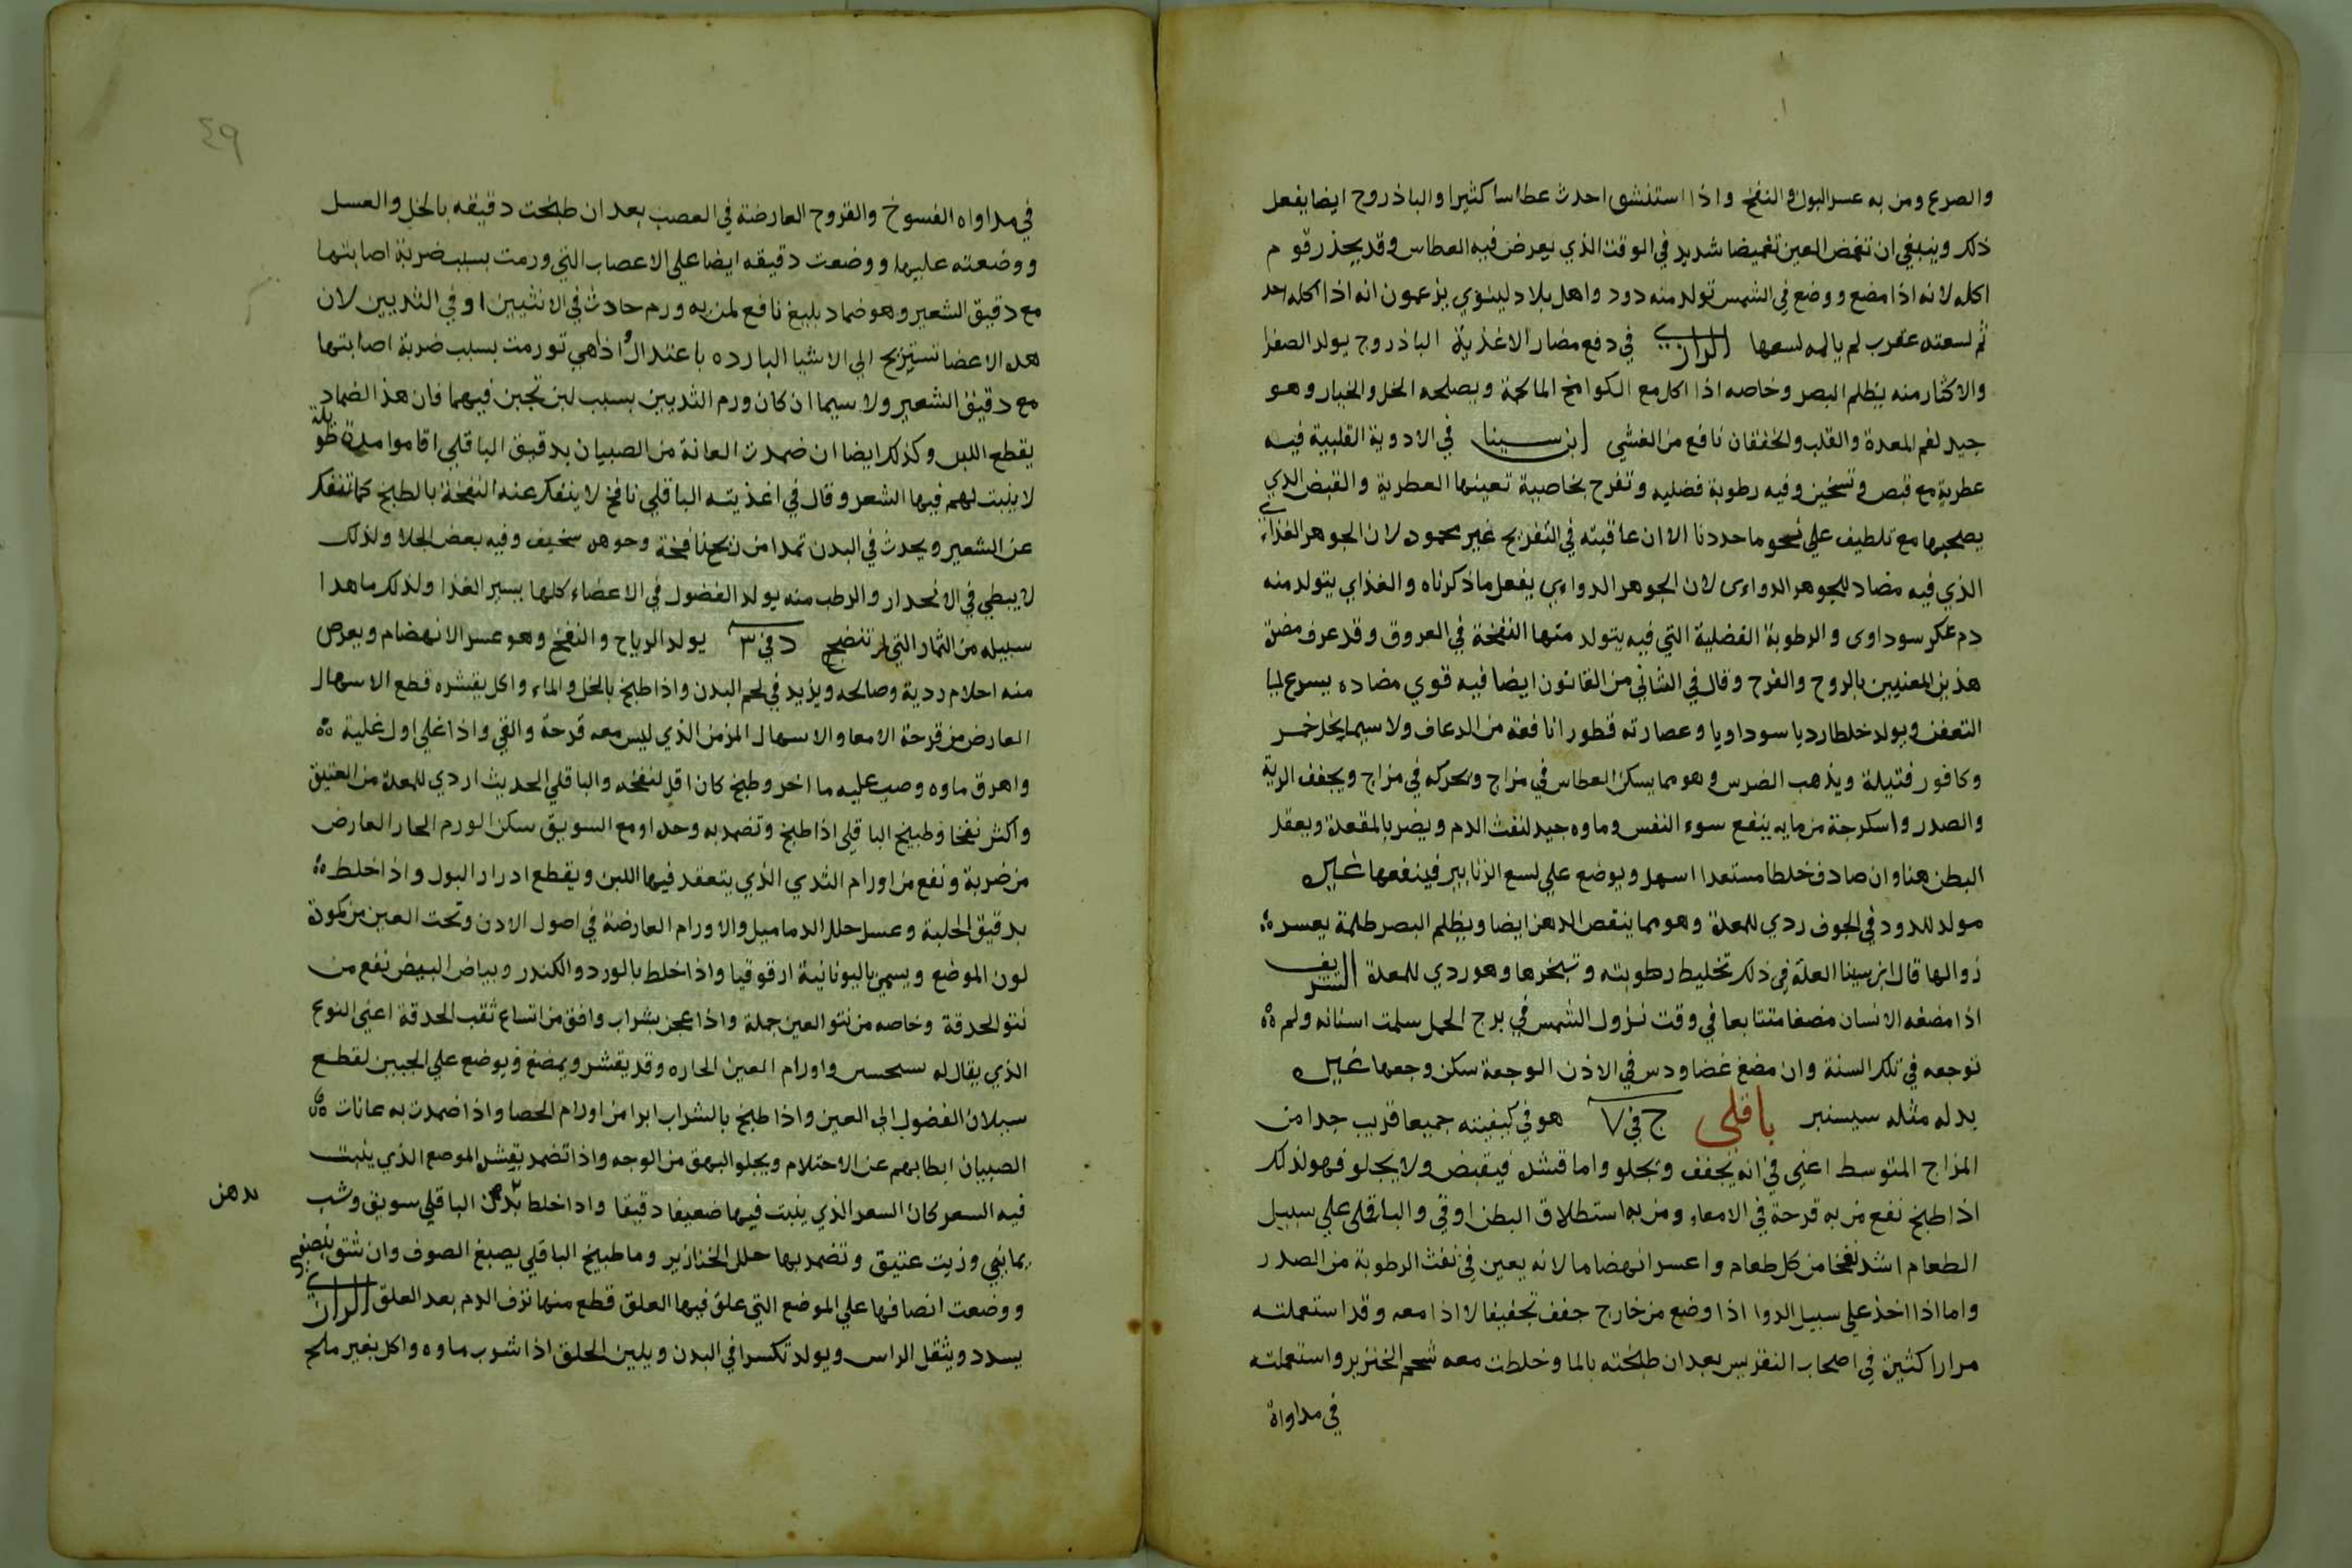 والصرع ومن به عسر البول والنفخ واذا استنشق احدث عطاسا كثيرا والباذروج ايضا يفعل
ذلك وينبغي ان تغمض العين تغميضا شديد في الوقت الذي يعرض فيه العطاس وقد يحذر قوم
اكله لانه اذا مضغ ووضع في الشمس تولد منه دود واهل بلاد لينوي يزعمون انه اذا اكله احد
ثم لسعته عقرب لم يالمه لسعها الرازي في دفع مضار الاغذية الباذروج يولد الصفرا
والاكثار منه يظلم البصر وخاصه اذا اكل مع الكوامخ المالحة ويصلحه الخل والخيار وهو
جيد لفم المعدة والقلب ولخفقان نافع من الغشي ابن سينا في الادوية القلبية فيه
عطرية مع قبص وتسخين وفيه رطوبة فضليه وتفرح بخاصية تعينها العطرية والقبض الذي
يصحبها مع تلطيف علي نحو ما حددنا الا ان عاقبته في التفريح غير محمود لان الجوهر الغذاءي
الذي فيه مضاد للجوهر الدواءى لان الجوهر الدواءي يفعل ما ذكرناه والغذاي يتولد منه
دم عكر سوداوى والرطوبة الفضلية التي فيه يتولد منها النفخة في العروق وقد عرف مضرة
هذين المعنيين بالروح والفرح وقال في الثاني من القانون ايضا فيه قوي مضاده يسرع لها
التعفن ويولد خلطا رديا سوداويا وعصارته قطورا نافعة من الرعاف ولا سيما بخل خمر
وكافور فتيلة ويذهب الضرس وهو مما يسكن العطاس في مزاج ويحركه في مزاج ويجفف الرية
والصدر واسكرجة من مايه ينفع سوء النفس وماوه جيد لنفث الدم ويضر بالمقعدة ويعقد
البطن هنا وان صادف خلطا مستعدا اسهل ويوضع علي لسع الزنابير فينفعها غيره
مولد للدود في الجوف ردي للمعدة وهو مما ينقص الدهن ايضا ويظلم البصر ظلمة يعسر
زوالها قال ابن سينا العلة في ذلك تخليط رطوبته وتبخرها وهو ردي للمعدة الشريف
اذا مضغه الانسان مضغا متتابعا في وقت نزول الشمس في برج الحمل سلمت اسنانه ولم
توجعه في تلك السنة وان مضغ غضا ودس في الاذن الوجعة سكن وجعها غيره
بدله مثله سيسنبر باقلي ج في ٧ هو في كيفيته جميعا قريب جدا من
المزاج المتوسط اعني في انه يجفف ويجلو واما قشره فيقبض ولا يجلو فهو لذلك
اذا طبخ نفع من به قرحة في الامعاء ومن به استطلاق البطن او قي والباقلى علي سبيل
الطعام اشد نفخا من كل طعام واعسر انهضاما لانه يعين في نفث الرطوبة من الصدر
واما اذا اخذ علي سبيل الدوا اذا وضع من خارج جفف تجفيفا لا اذا معه وقد استعملته
مرارا كثيرة في اصحاب النقرس بعد ان طبخته بالما وخلطت معه شحم الخنزير واستعملته
في مداواة
٤٩
في مداواه الفسوخ والقروح العارضة في العصب بعد ان طبخت دقيقه بالخل والعسل
ووضعته عليها ووضعت دقيقه ايضا علي الاعصاب التي ورمت بسبب ضربة اصابتها
مع دقيق الشعير وهو ضماد بليغ نافع لمن به ورم حادث في الانثيين او في الثديين لان
هده الاعضا تستريح الي الاشيا البارده باعتدال واذا هي تورمت بسبب ضربة اصابتها
مع دقيق الشعير ولا سيما ان كان ورم الثديين بسبب لبن تجبن فيهما فان هذ الضماد
يقطع اللبن وكذلك ايضا ان ضمدت العانة من الصبيان بدقيق الباقلي اقاموا مدة طويلة
لا ينبت لهم فيها الشعر وقال في اغذيته الباقلي نافخ لا ينفك عنه النفخة بالطبخ كما تنفك
عن الشعير ويحدث في البدن تمدا من ريح نافخة وجوهره سخيف وفيه بعض الجلا ولذلك
لا يبطي في الانحدار والرطب منه يولد الفضول في الاعضاء كلها يسير الغذا ولذلك ما هدا
سبيله من الثمار التي لم تنضج د في ٣ يولد الرياح والنفخ وهو عسر الانهضام ويعرض
منه احلام ردية وصالحه ويزيد في لحم البدن واذا طبخ بالخل والماء واكل بقشره قطع الاسهال
العارض من قرحة الامعا والاسهال المزمن الذي ليس معه قرحة والقي واذا غلي اول غلية
واهرق ماوه وصب عليه ما اخر وطبخ كان اقل لنفخه والباقلي الحديث اردي للمعدة من العتيق
واكثر نفخا وطبيخ الباقلي اذا طبخ وتضمد به وحده او مع السويق سكن الورم الحار العارض
من ضربة ونفع من اورام الثدي الذي يتعقد فيها اللبن ويقطع ادرار البول واذا خلط
بدقيق الحلبة وعسل حلل الدماميل والاورام العارضة في اصول الادن وتحت العين من كمودة
لون الموضع ويسمي باليونانية ارقوقيا واذا خلط بالورد والكندر وبياض البيض نفع من
نتو الحدقة وخاصه من نتو العين جملة واذا عجن بشراب وافق من اتساع ثقب الحدقة اعني النوع
الذي يقال له واورام العين الحاره وقد يقشر ويمضغ ويوضع علي الجبين لقطع
سيلان الفضول الي العين واذا طبخ بالشراب ابرا من اورام الحصا واذا ضمدت به عانات
الصبيان ابطا بهم عن الاحتلام ويجلو البهق من الوجه واذا تضمد بقشر الموضع الذي ينبت
فيه السعر كان السعر الذي ينبت فيها ضعيفا دقيقا واذا خلط بدهن الباقلي سويق وشب
بدهن
يماني وزيت عتيق وتضمد بها حلل الخنازير وما طبيخ الباقلي يصبغ الصوف وان شق بنصفين
ووضعت انصافها علي الموضع التي علق فيها العلق قطع منها نزف الدم بعد العلق الرازي
يسدد ويثقل الراس ويولد تكسرا في البدن ويلين الحلق اذا شرب ماوه واكل بغير ملح